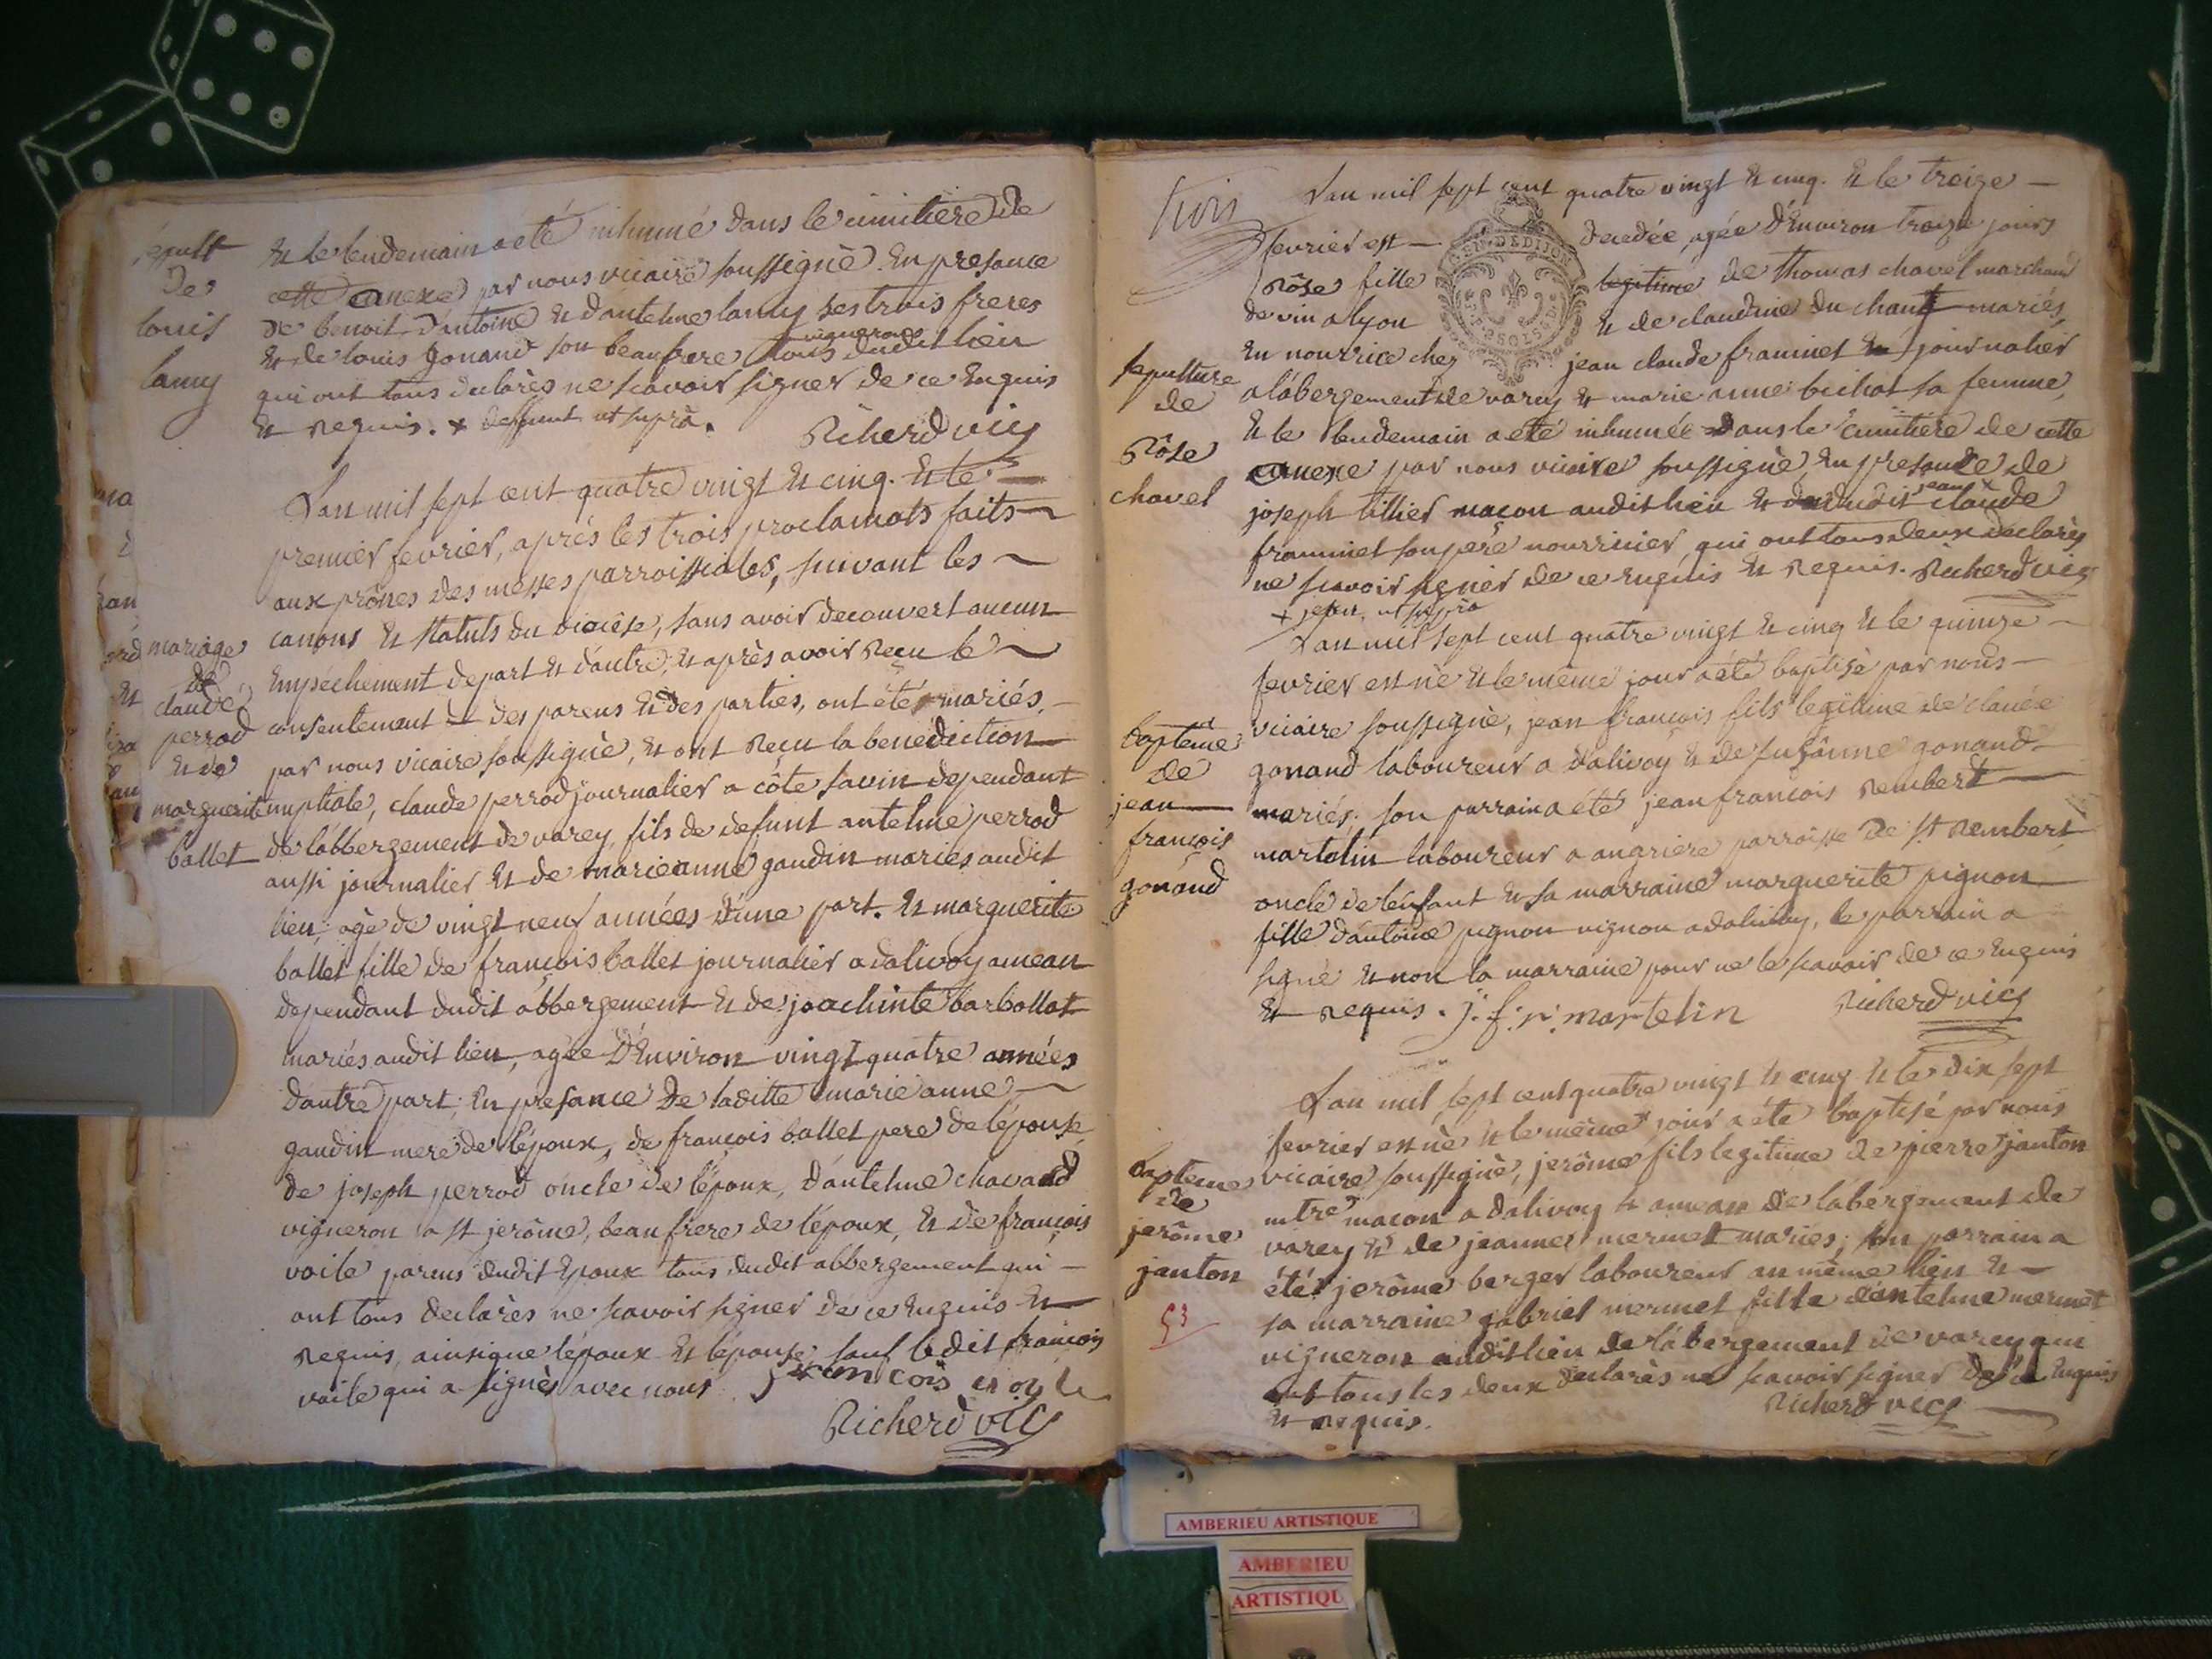 sépult
de
louis
lamy
Et le lendemain a eté inhumé dans le cimitiere de
cette anexe par nous vicaire soussignè. En presance
de benoit d'antoine Et d'antelme lamy ses trois freres
Et de louis gonand son beaufrere tous vignerons dudit lieu
qui ont tous declarès ne scavoir signer de ce Enquis
Et Requis. x deffunt ut suprà.
Richerd vic
mariage
de
claude
perrod
Et de
marguerite
ballet
L'an mil sept cent quatre vingt Et cinq. Et le
premier fevrier, aprés les trois proclamats faits
aux prônes des messes parroissiales, suivant les
canons Et statuts du diocèse, sans avoir decouvert aucun
Empéchement de part Et d'autre, Et après avoir Reçu le
consentement des parens Et des parties, ont étés mariés
par nous vicaire soussignè, Et ont Reçu la benediction
nuptiale, claude perrod journalier a côte savin dependant
de l'abbergement de varey, fils de defunt antelme perrod
aussi journalier Et de marieanne gaudin mariés audit
lieu, agé de vingt neuf années d'une part. Et marguerite
ballet fille de françois ballet journalier a dalivoy ameau
dependant dudit abbergement Et de joachinte barbollat
mariés audit lieu, agée d'Environ vingt quatre années
d'autre part; En presance de laditte marie anne
gaudin mere de l'époux, de françois ballet pere de l'épouse
de joseph perrod oncle de l'époux, d'antelme chavand
vigneron a st jerôme, beaufrere de l'époux, Et de françois
voile parens dudit Epoux tous dudit abbergement qui
ont tous declarès ne scavoir signer de ce Enquis Et
Requis, ainsique l'époux Et l'épouse sauf ledit françois
voile qui a signès avec nous. françois
Richerd vic
trois
sepulture
de
Rôse
chavel
L'an mil sept cent quatre vingt Et cinq. Et le treize
fevrier est decedée, agée d'Environ treize jours
Rôse fille legitime de thomas chavel marchand
de vin a lyon Et de claudine du chant mariés
En nourrice chez jean claude framinet journalier
a l'abergement de varey Et marie anne bichat sa femme,
Et le lendemain a eté inhumée dans le cimitiere de cette
anexe par nous vicaire soussignè, En presance de
joseph tillier maçon audit lieu Et dudit jean x claude
framinet son pere nourricier, qui ont tous deux declarès
ne scavoir signer de ce Enquis Et Requis. Richerd vic
x jean, ut suprà
baptême
de
jean
françois
gonand
L'an mil sept cent quatre vingt Et cinq Et le quinze
fevrier est né Et le même jour a été baptisé par nous
vicaire soussignè, jean françois fils legitime de claude
gonand laboureur a dalivoy Et de suzanne gonand
mariés; son parrain a été jean françois Rembert
martelin laboureur a angriere parroisse de st Rembert
oncle de l'enfant Et sa marraine marguerite pignon
fille d'antoine pignon vignon a dalivoy, le parrain a
signé Et non la marraine pour ne le scavoir de ce Enquis
Et Requis. j: f: r: martelin Richerd vic
baptême
de
jerôme
janton
53
L'an mil sept cent quatre vingt Et cinq Et le dix sept
fevrier est né Et le même jour a été baptisé par nous
vicaire soussignè, jerôme fils legitime de pierre janton
mtre macon a dalivoy ameau de l'abergement de
varey Et de jeanne mermet mariés; son parrain a
été jerôme berger laboureur au même lieu Et
sa marraine gabriel mermet fille d'antelme mermet
vigneron audit lieu de l'abergement de varey qui
ont tous les deux declarès ne scavoir signer de ce Enquis
Et Requis. Richerd vic
AMBERIEU ARTISTIQUE
AMBERIEU
ARTISTIQU